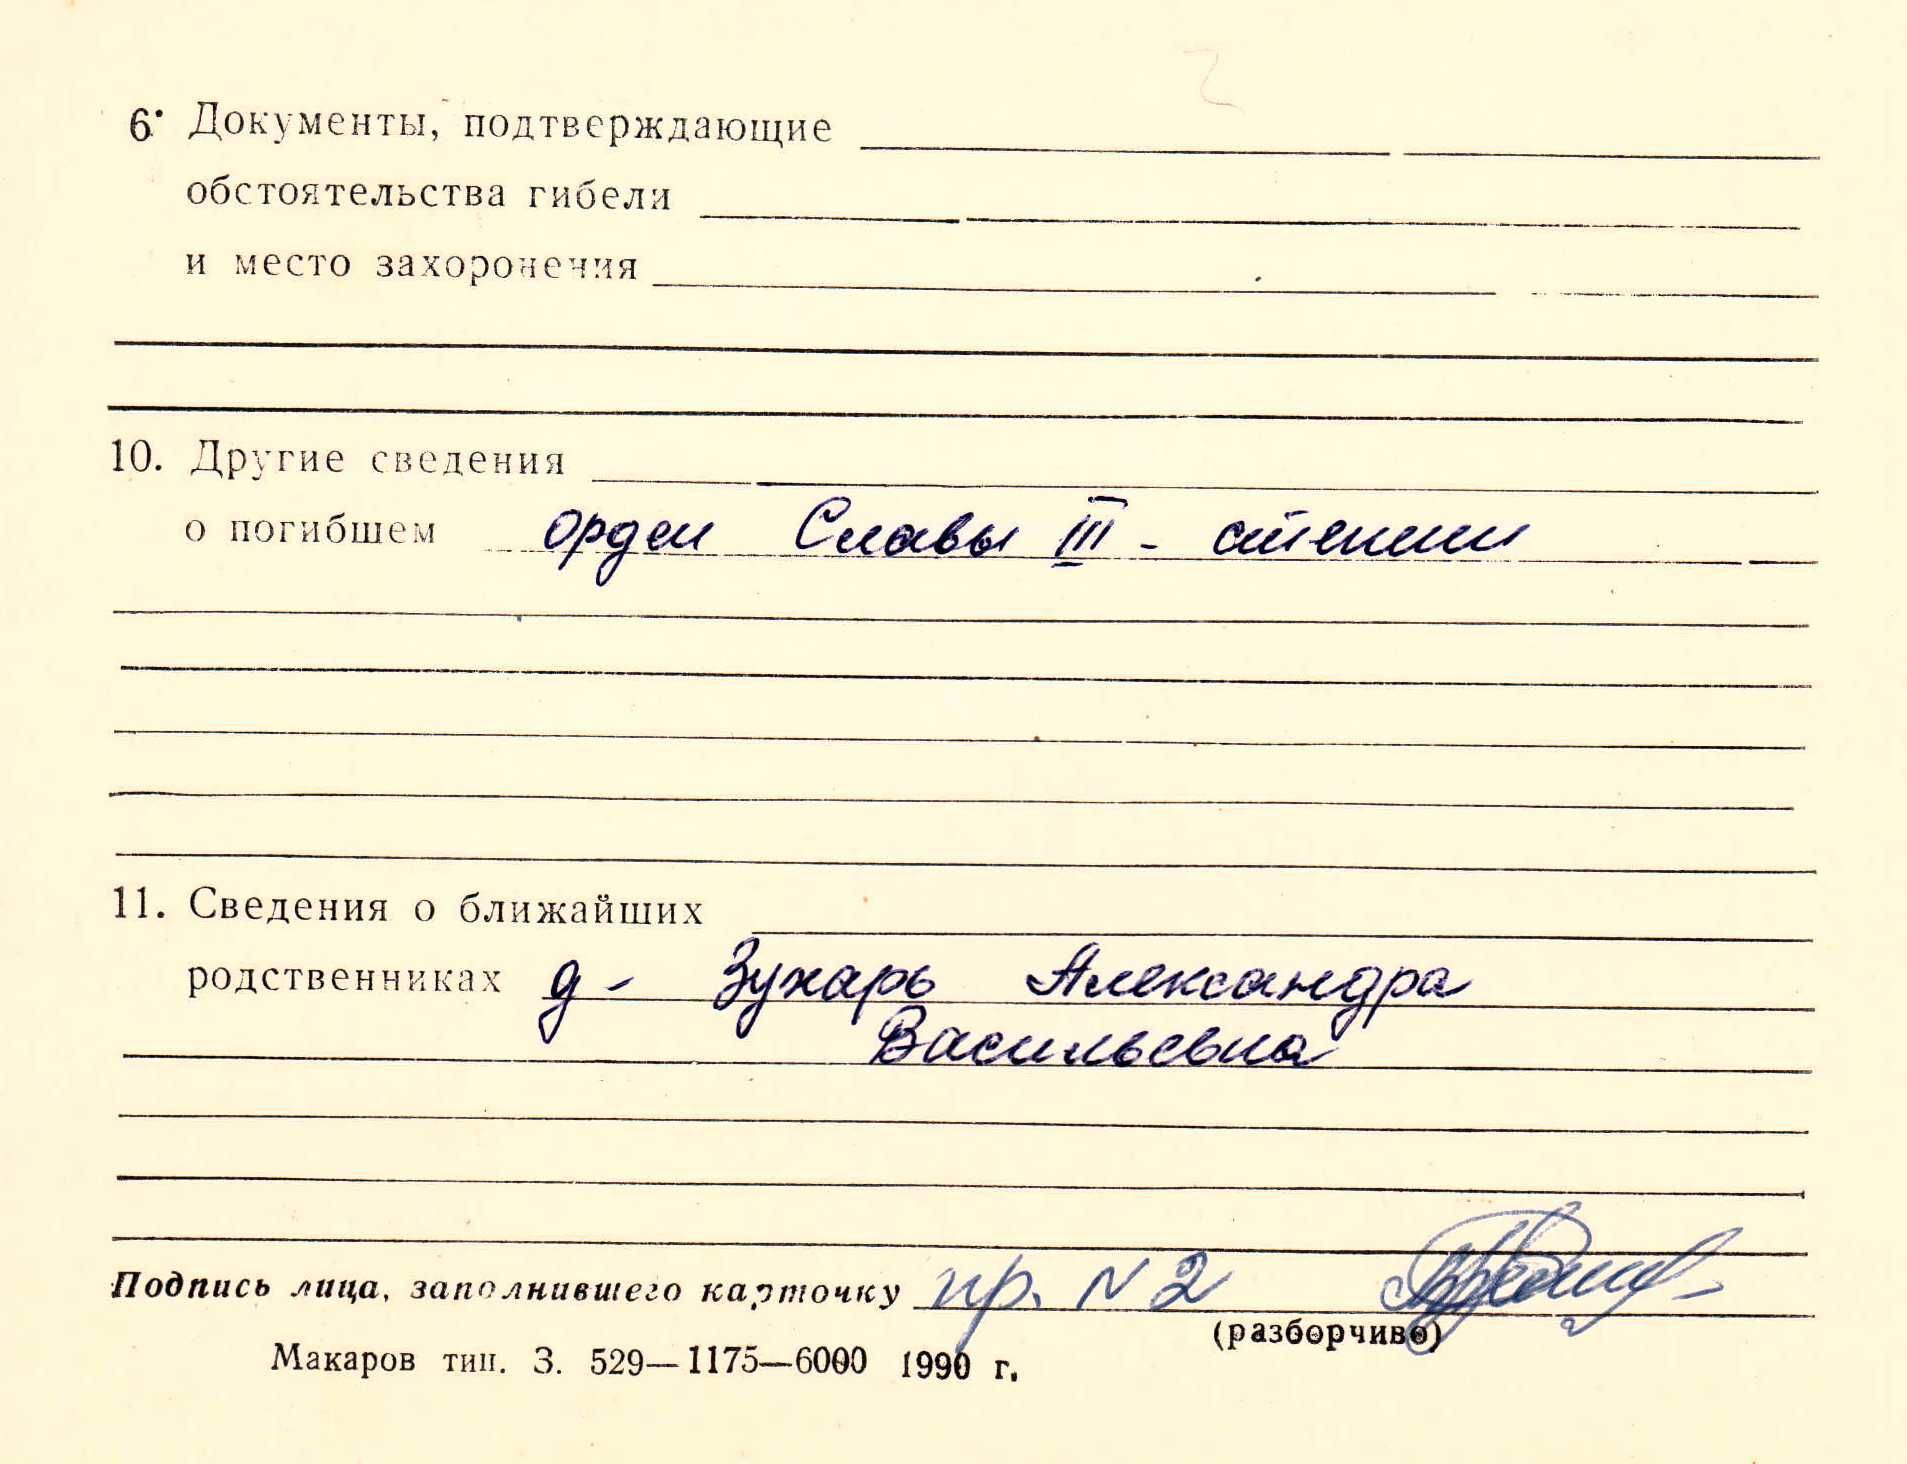 6. Документы, подтверждающие
обстоятельства гибели
и место захоронения
10. Другие сведения
о погибшем орден Славы III - степени
11. Сведения о ближайших
родственниках д - Зухарь Александра
Васильевна
Подпись лица, заполнившего карточку пр. N 2
(разборчиво)
Макаров тип. З. 529—1175—6000 1990 г.